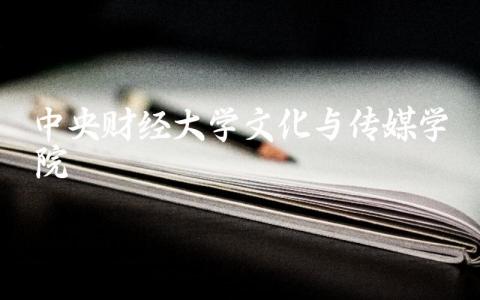 中央财经大学文化与传媒学
院